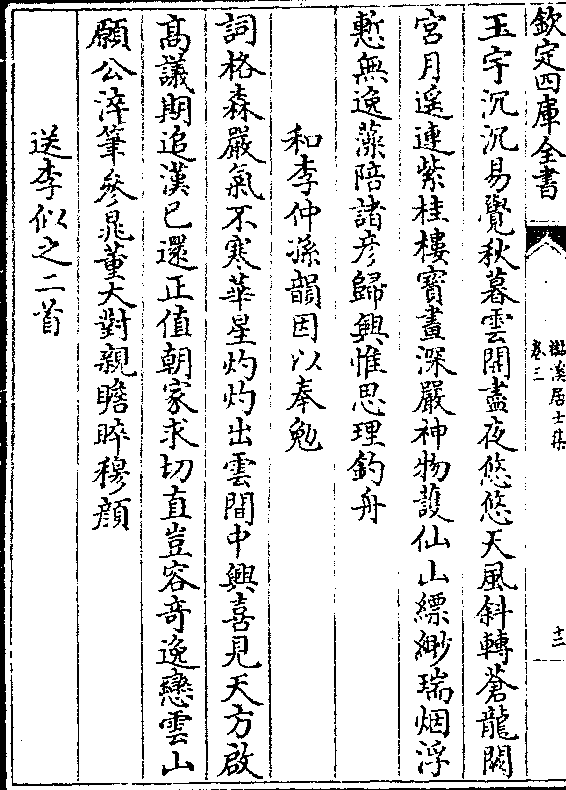 欽定四庫全書
㵎溪居士集
卷三
十二
玉宇沉沉易覺秋暮雲開盡夜悠悠天風斜轉蒼龍闕
宮月遙連紫桂樓寳畫深嚴神物護仙山縹緲瑞烟浮
慙無逸藻陪諸彦歸興惟思理釣舟
和李仲孫韻因以奉勉
詞格森嚴氣不寒華星灼灼出雲間中興喜見天方啟
高議期追漢已還正值朝家求切直豈容竒逸戀雲山
願公淬筆參晁董大對親瞻睟穆顔
送李似之二首